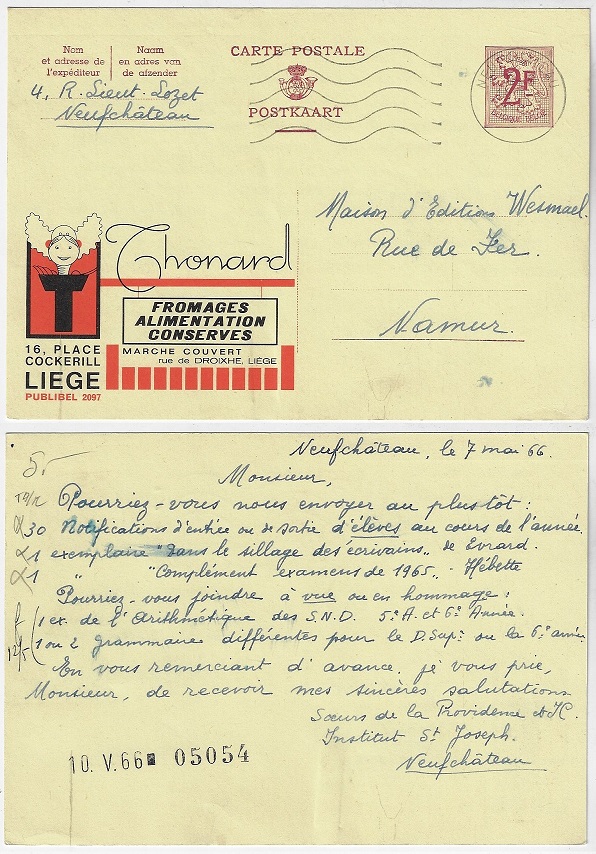 Nom
et adresse de
l'expéditeur
Naam
en adres van
de afzender
CARTE POSTALE
POSTKAART
2F
BELGIQUE-BELGIE
4, R. Lieut. Lozet
Neufchâteau
Maison d'Editions Wesmael.
Rue de Fer.
Namur.
T
Thonard
FROMAGES
ALIMENTATION
CONSERVES
16, PLACE
COCKERILL
LIEGE
PUBLIBEL 2097
MARCHE COUVERT
rue de DROIXHE, LIÉGE
Neufchâteau, le 7 mai 66.
5.-
Monsieur,
Pourriez-vous nous envoyer au plus tôt :
30 Notifications d'entrée ou de sortie d'élèves au cours de l'année.
1 exemplaire "Dans le sillage des écrivains" de Evrard.
1 " "Complément examens de 1965" - Hébette
Pourriez-vous joindre à vue ou en hommage :
1 ex. de l'Arithmétique des S.N.D. 5e A. et 6e Année.
1 ou 2 grammaires différentes pour le D. Supr ou la 6e année
En vous remerciant d'avance, je vous prie,
Monsieur, de recevoir mes sincères salutations.
Sœurs de la Providence et
Institut St Joseph.
Neufchâteau
10. V. 66 05054